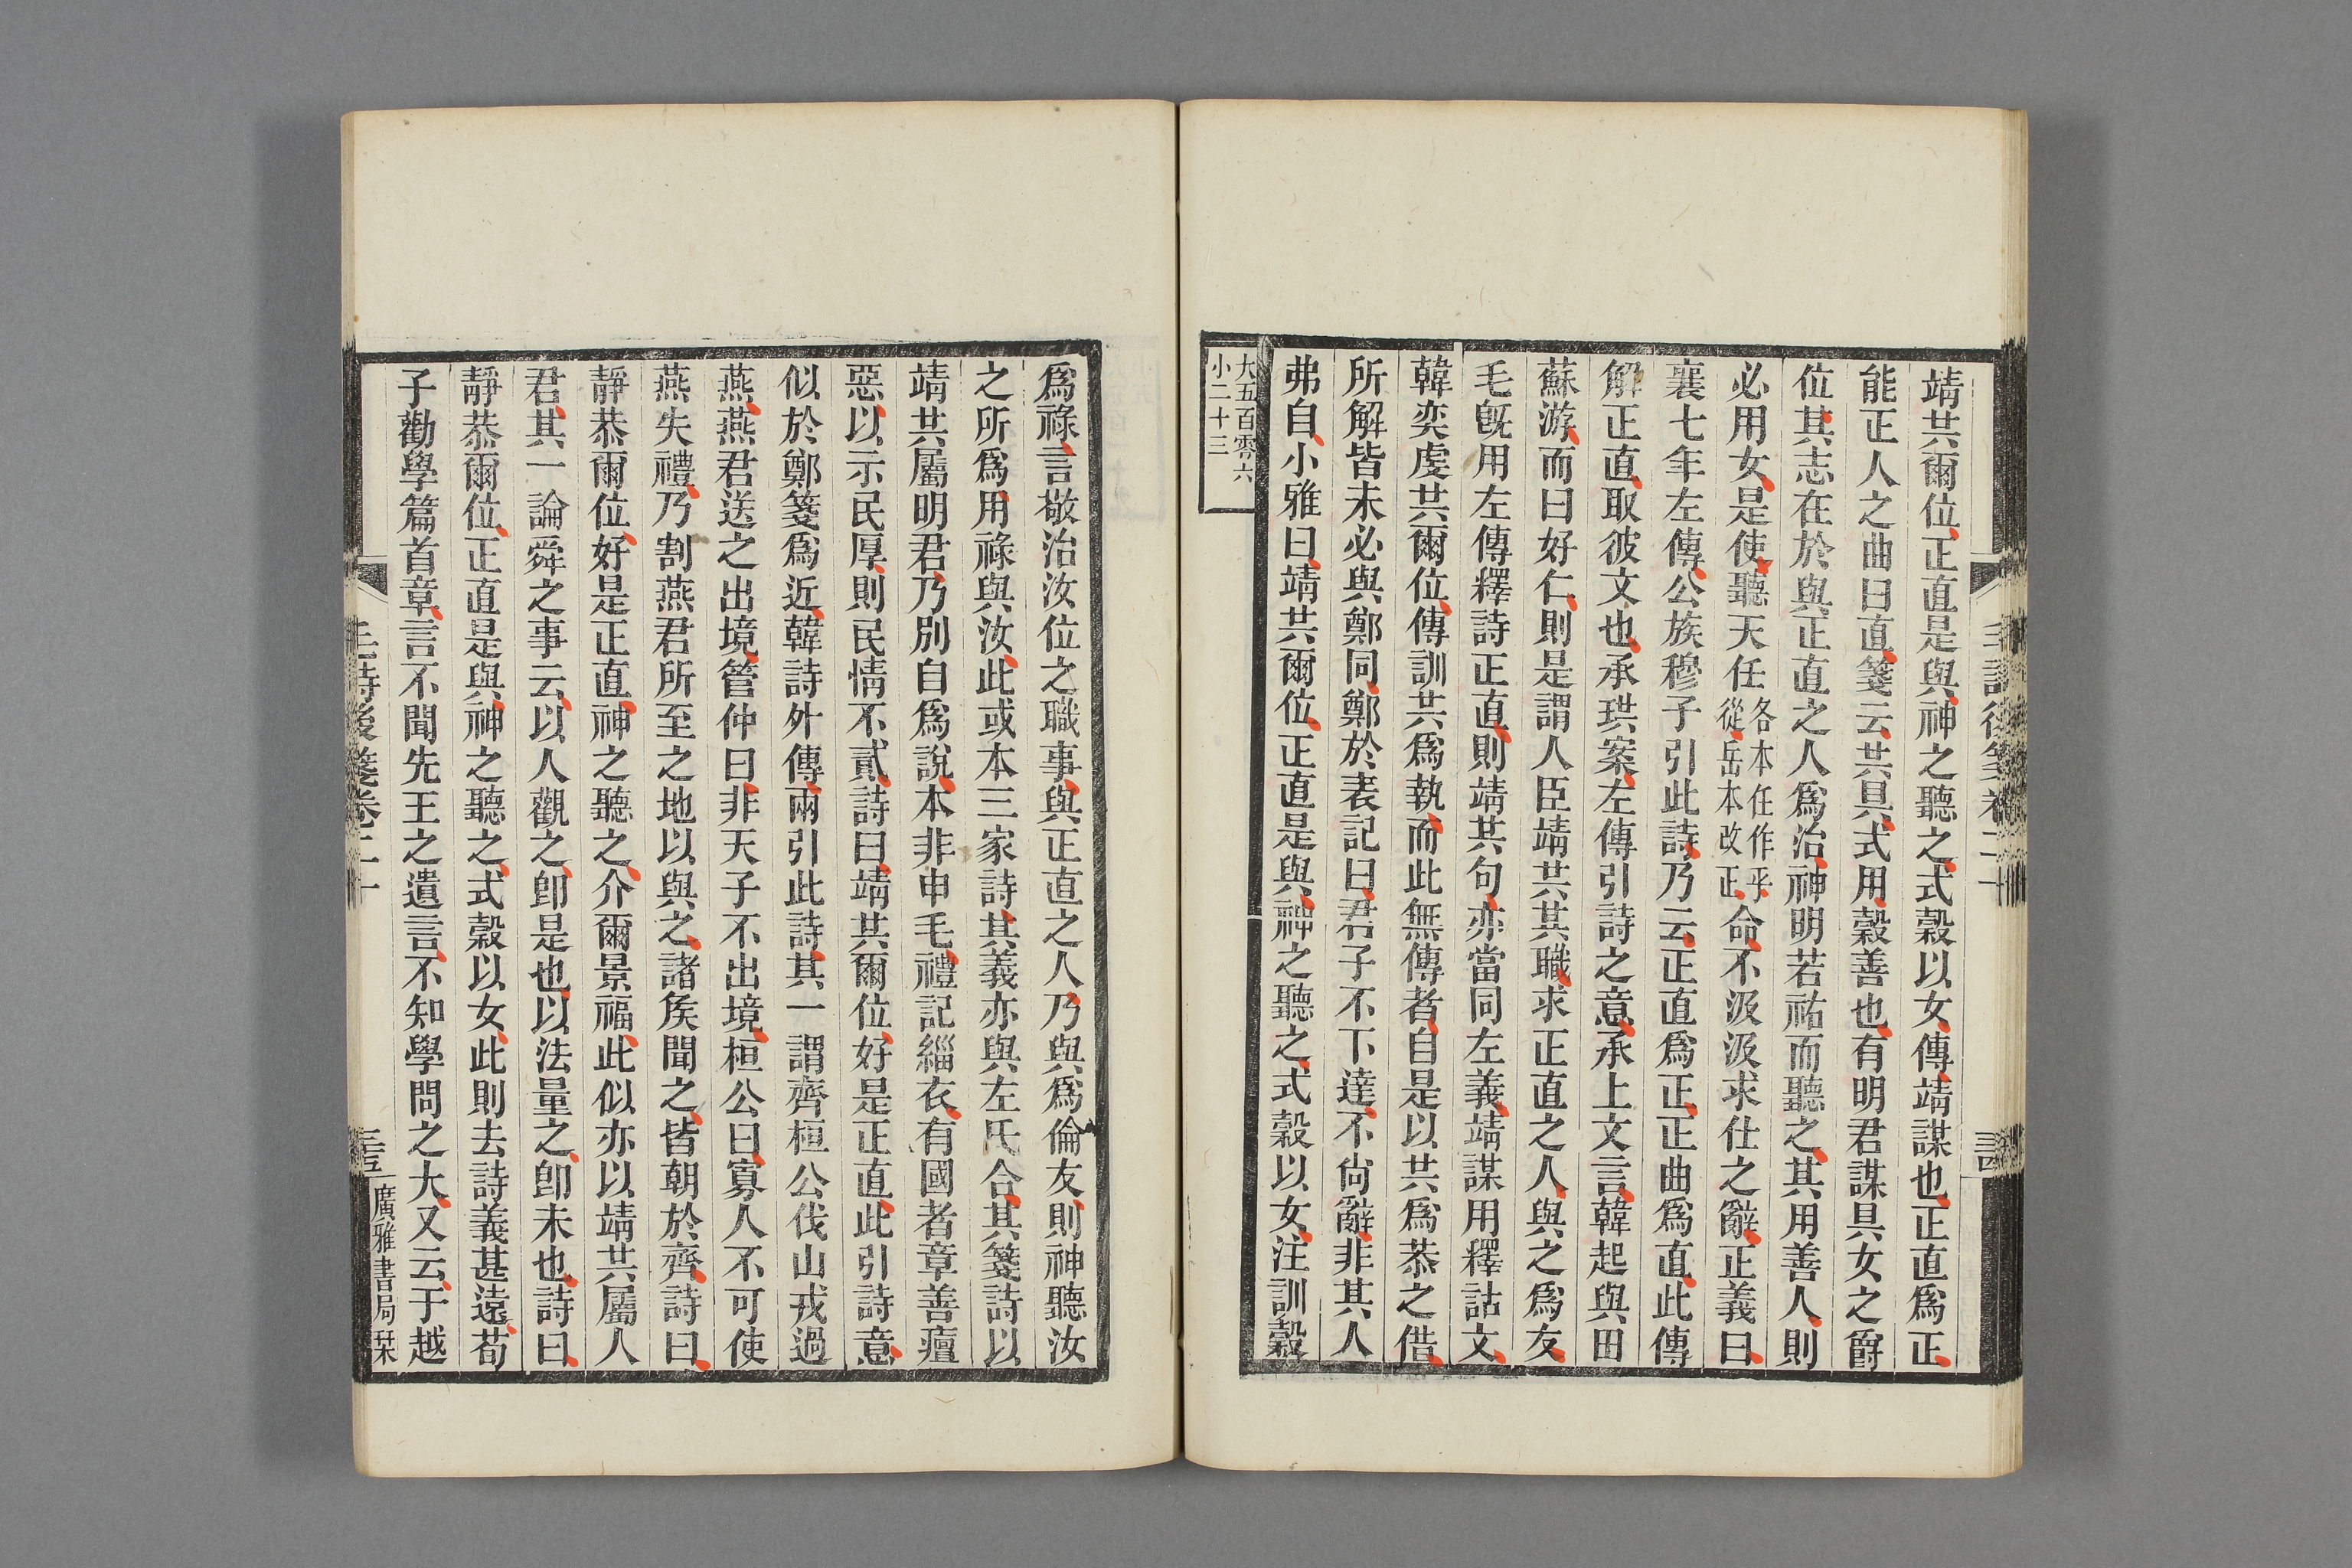 毛詩後箋卷二十
靖共爾位正直是與神之聽之式穀以女傳靖謀也正直爲正
能正人之曲曰直箋云共具式用穀善也有明君謀具女之爵
位其志在於與正直之人爲治神明若祐而聽之其用善人則
必用女是使聽天任各本任作乎從岳本改正命不汲汲求仕之辭正義曰
襄七年左傳公族穆子引此詩乃云正直爲正正曲爲直此傳
解正直取彼文也承珙案左傳引詩之意承上文言韓起與田
蘇游而曰好仁則是謂人臣靖共其職求正直之人與之爲友
毛旣用左傳釋詩正直則靖共句亦當同左義靖謀用釋詁文
韓奕虔共爾位傳訓共爲執而此無傳者自是以共爲恭之借
所解皆未必與鄭同鄭於表記曰君子不下達不尙辭非其人
弗自小雅曰靖共爾位正直是與神之聽之式穀以女注訓穀
大五百零六
小二十三
爲祿言敬治汝位之職事與正直之人乃與爲倫友則神聽汝
之所爲用祿與汝此或本三家詩其義亦與左氏合其箋詩以
靖共屬明君乃別自爲說本非申毛禮記緇衣有國者章善癉
惡以示民厚則民情不貳詩曰靖共爾位好是正直此引詩意
似於鄭箋爲近韓詩外傳兩引此詩其一謂齊桓公伐山戎過
燕燕君送之出境管仲曰非天子不出境桓公曰寡人不可使
燕失禮乃割燕君所至之地以與之諸矦聞之皆朝於齊詩曰
靜恭爾位好是正直神之聽之介爾景福此似亦以靖共屬人
君其一論舜之事云以人觀之卽是也以法量之卽未也詩曰
靜恭爾位正直是與神之聽之式穀以女此則去詩義甚遠荀
子勸學篇首章言不聞先王之遺言不知學問之大又云于越
毛詩後箋卷二十
廣雅書局栞